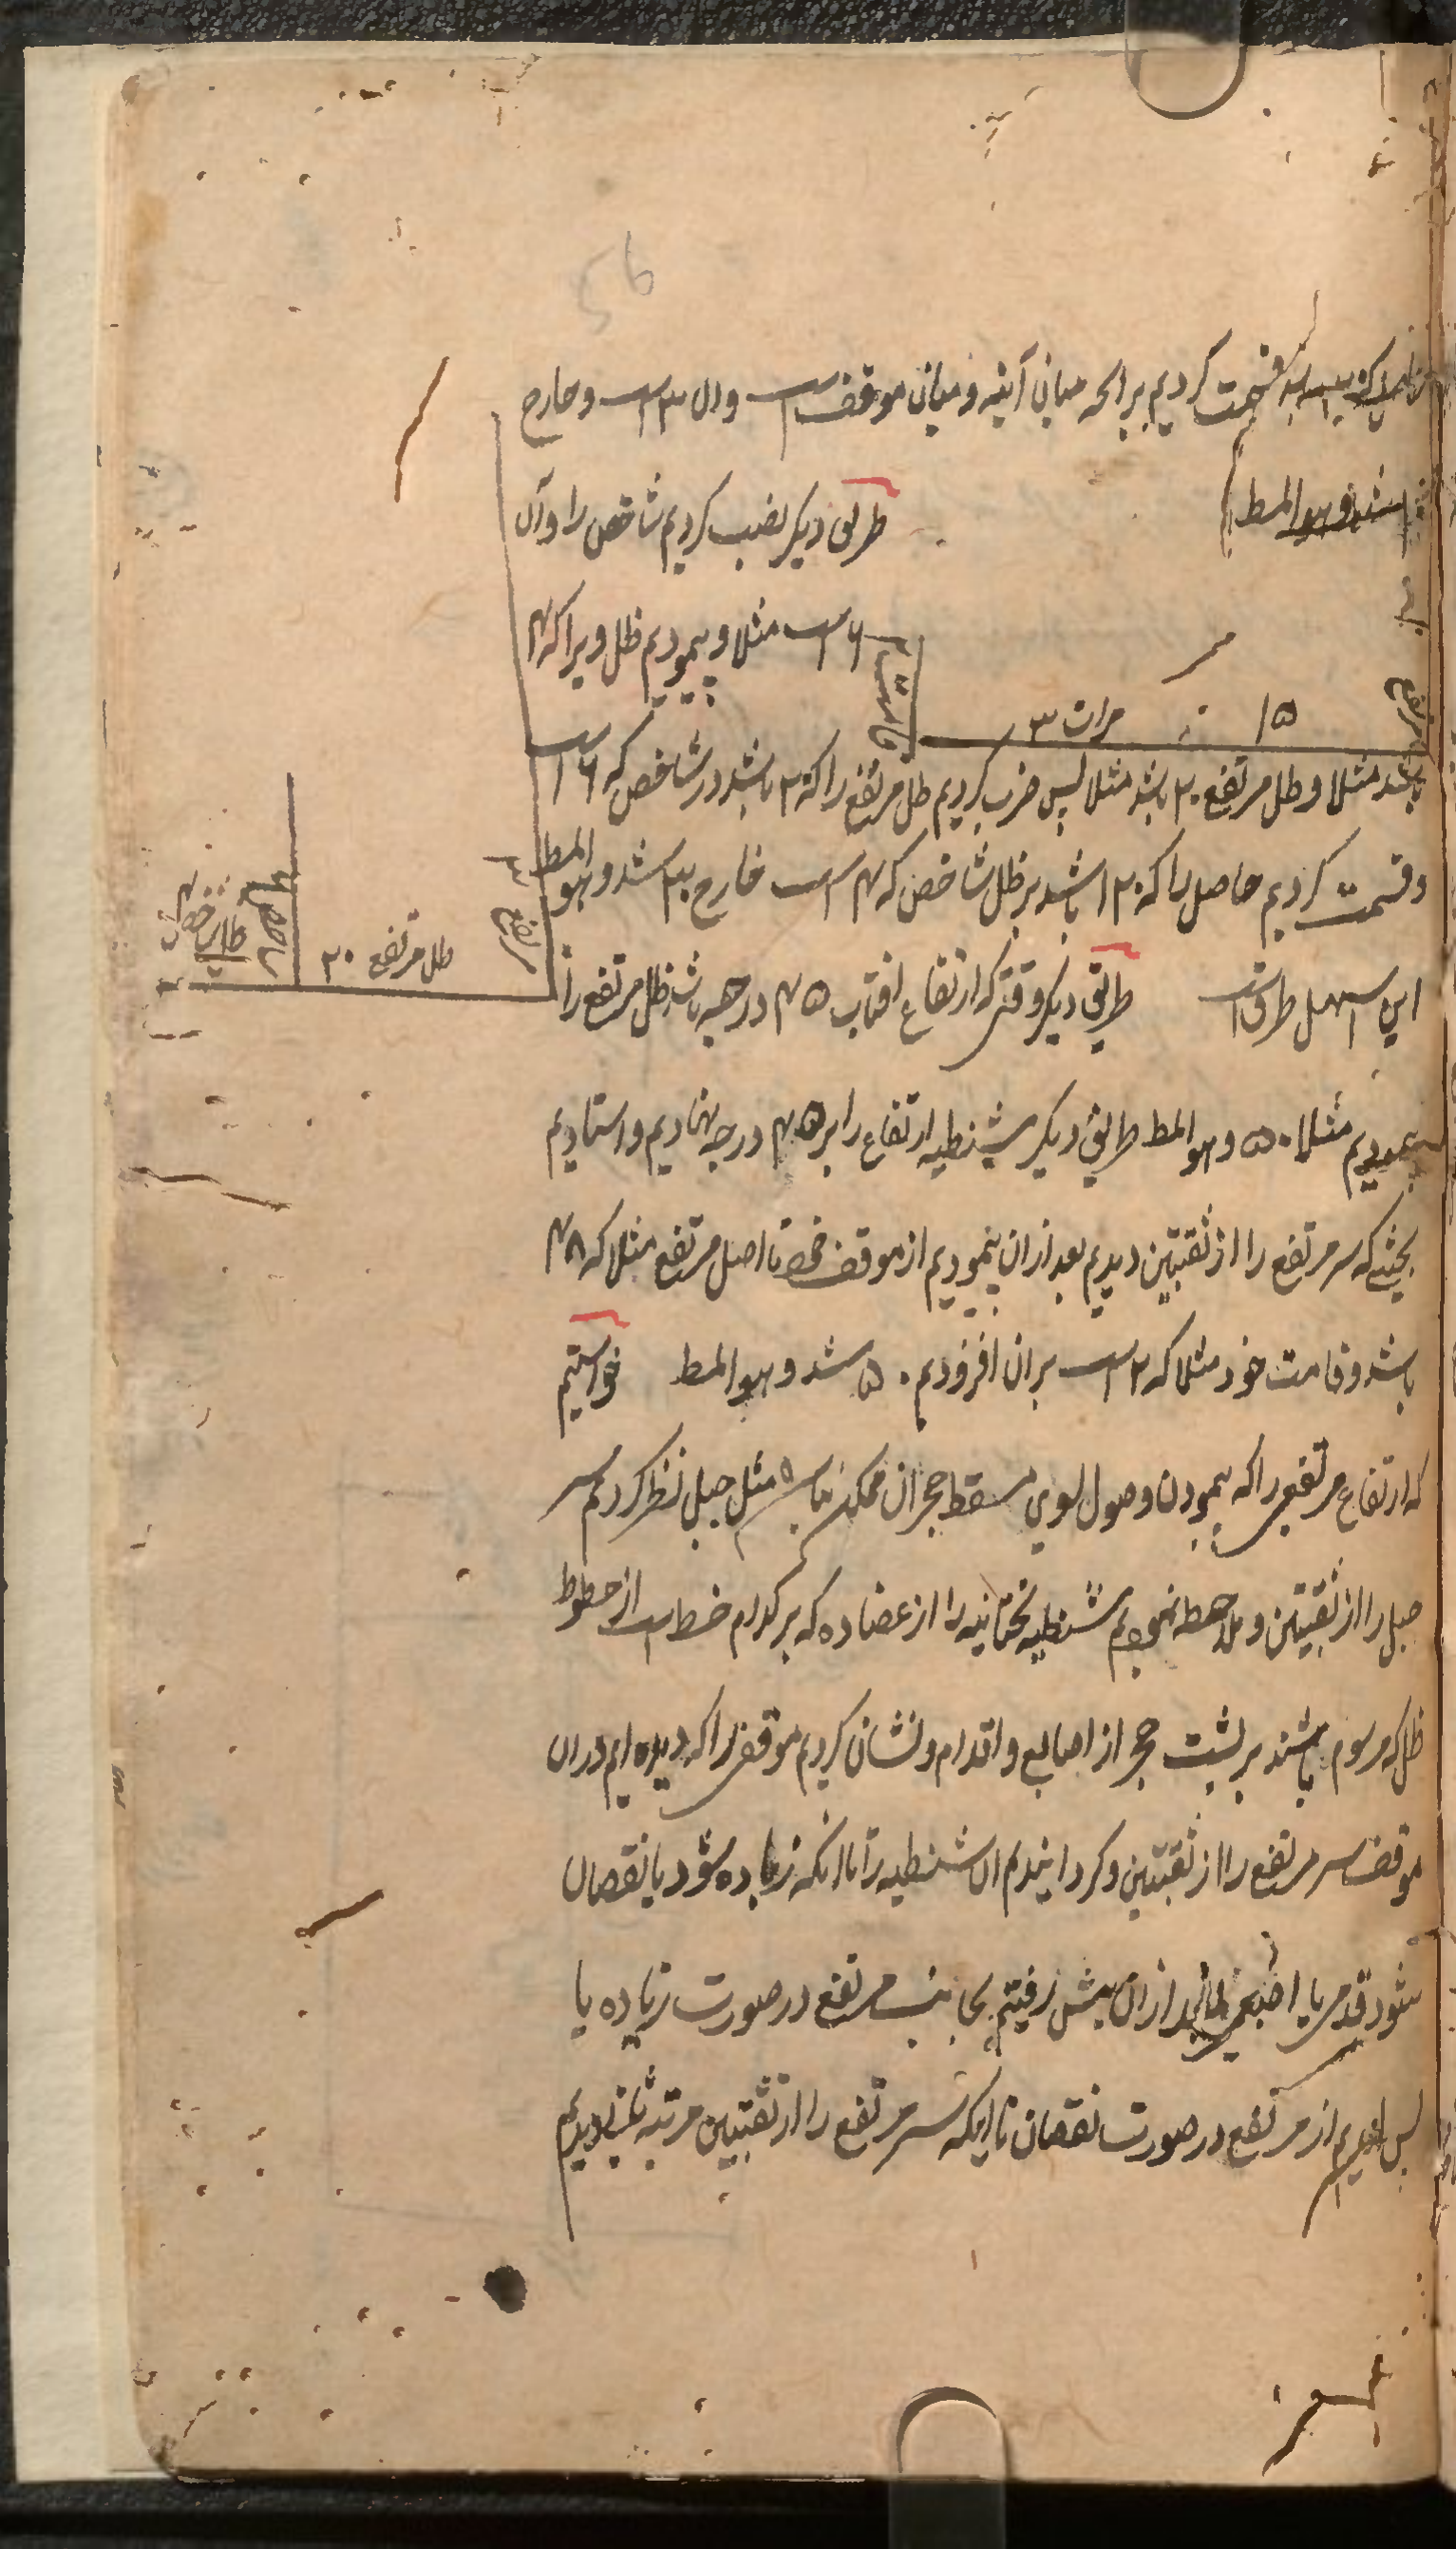 قسمت کردیم برانچه میان آینه و میان موقف است وان ۳ است و خارج
شد و هو المط
طریق دیکر نصب کردیم شاخص را و آن
۶ است مثلا و پیمودیم ظل ویرا که ۴
۱۵
مرات ۳
مرتفع
باشد مثلا و ظل مرتفع ۲۰ باشد مثلا پس ضرب کردیم ظل مرتفع را که ۲۰ باشد در شاخص که ۶ است
و قسمت کردیم حاصل را که ۱۲۰ باشد بر ظل شاخص که ۴ است خارج ۳۰ شد و هو المط
مرتفع ۳۰
ظل مرتفع ۲۰
شاخص ۶
ظل شاخص ۴
این اسهل طرق است طریق دیکر وقتی که ارتفاع افتاب ۴۵ درجه باشد ظل مرتفع را
پیمودیم مثلا ۵۰ و هو المط طریق دیکر شنطیه ارتفاع را بر ۴۵ درجه نهادیم و استادیم
بحیثی که سر مرتفع را از ثقبتین دیدیم بعد ازان پیمودیم از موقف خود تا اصل مرتفع مثلا که ۴۸
باشد و قامت خود مثلا که ۲ است بران افزودیم ۵۰ شد و هو المط خواستیم
که ارتفاع مرتفعی را که پیمودن وصول بسوی مسقط حجر ان ممکن نباشد مثل جبل نظر کردیم سر
جبل را از ثقبتین و ملاحظه نمودیم شنطیه تحتانیه را از عضاده که بر کدام خط است از خطوط
ظل که مرسوم باشند بر پشت حجر از اصابع و اقدام و نشان کردیم موقفی را که دیده ایم دران
موقف سر مرتفع را از ثقبتین و کردانیدیم ان شنطیه را تا انکه زیاده شود یا نقصان
شود قدمی یا اصبعی بعد ازان پیش رفتیم بجانب مرتفع در صورت زیاده یا
پس امدیم از مرتفع در صورت نقصان تا اینکه سر مرتفع را از ثقبتین مرتبه ثانیه دیدیم